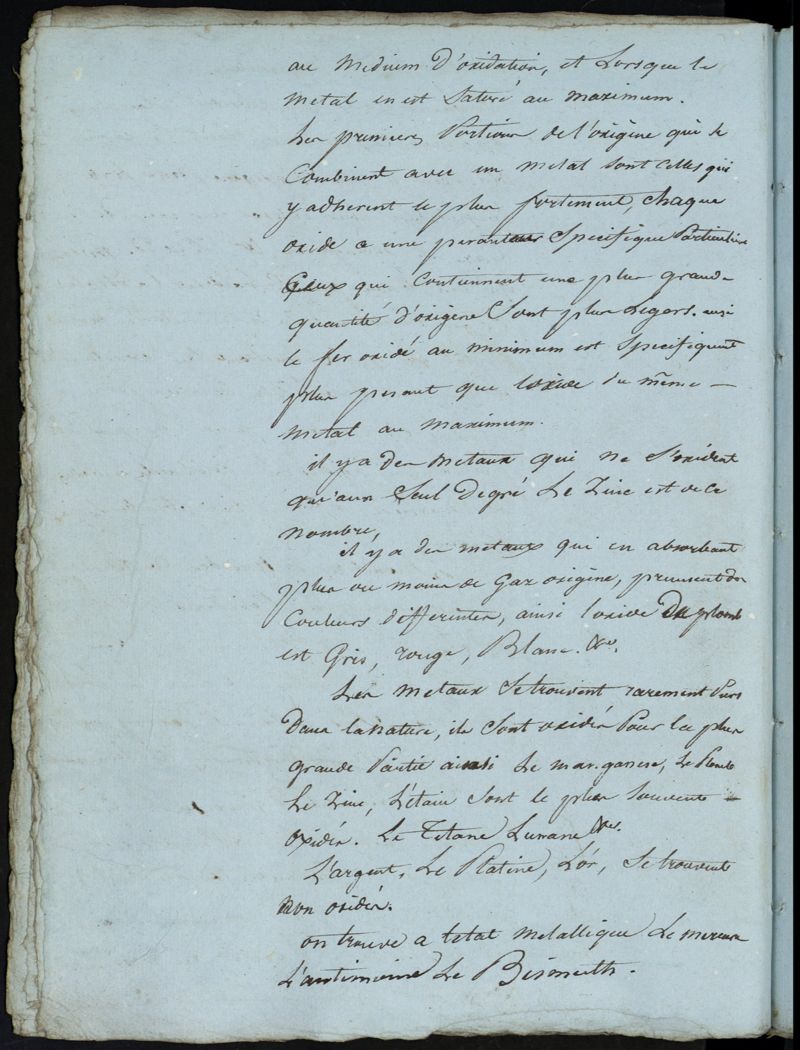 au Medium D'oxidation, et Lorsque le
Metal en est Saturé au maximum.
Les premieres Portions de l'oxigène qui se
Combinent avec un metal sont celles qui
y adherent le plus fortement, chaque
oxide a une pesanteur Specifique Particuliere
Ceux qui Contiennent une plus grande
quantité d'oxigène Sont plus Legers. ainsi
le fer oxidé au minimum est Specifiquemt
plus pesant que l'oxide du même —
Metal au maximum.
il y a des Metaux qui ne S'oxident
qu'aun Seul Degré Le Zinc est de ce
nombre,
il y a des metaux qui en absorbant
plus ou moins de Gaz oxigène, prennent des
Couleurs differentes, ainsi l'oxide Du plomb
est Gris, rouge, Blanc. &c.
Les metaux Se trouvent rarement Purs
Dans la Nature, ils Sont oxidés Pour la plus
grande Partie ainsi Le manganese, Le Plomb
Le Zinc, L'étain Sont le plus Souvent —
oxidés. Le Titane Lurane &c.
L'argent, Le Platine, L'or, Se trouvent
Non oxidés.
on trouve a letat metallique Le mercure
L'antimoine Le Bismuth.